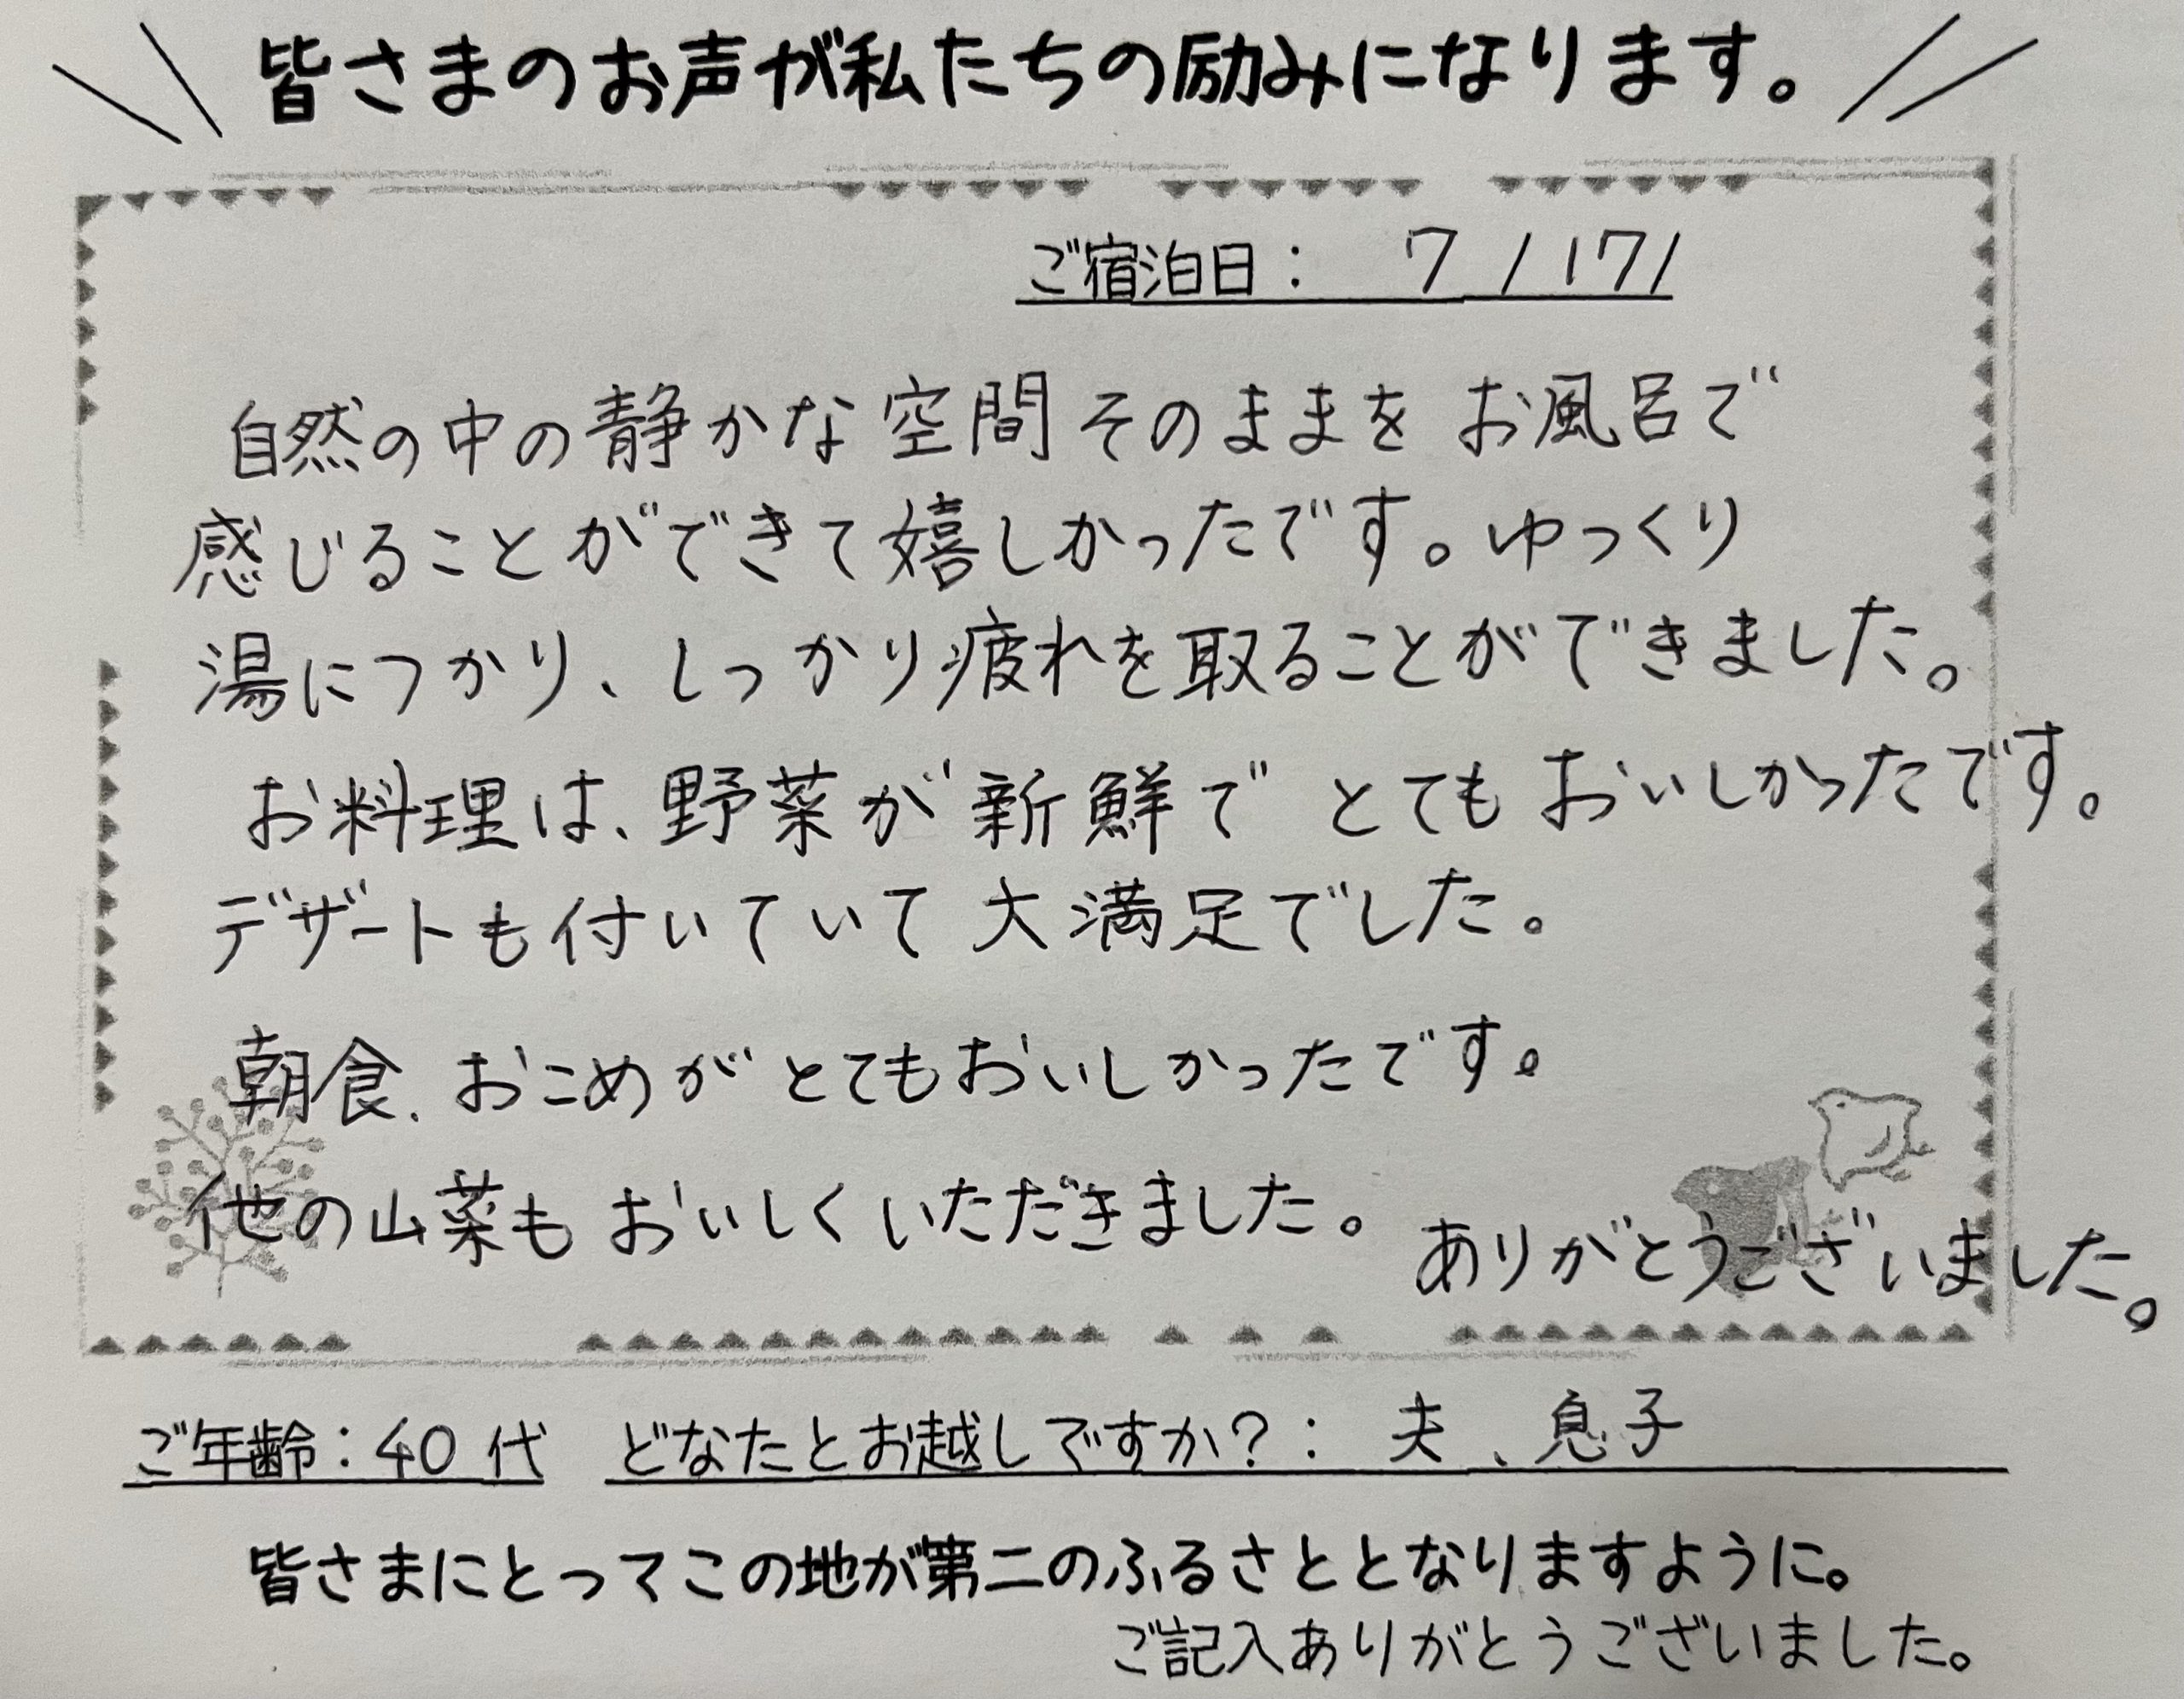 皆さまのお声が私たちの励みになります。
ご宿泊日： 7/17/
自然の中の静かな空間そのままをお風呂で
感じることができて嬉しかったです。ゆっくり
湯につかり、しっかり疲れを取ることができました。
お料理は、野菜が新鮮でとてもおいしかったです。
デザートも付いていて大満足でした。
朝食、おこめがとてもおいしかったです。
他の山菜もおいしくいただきました。 ありがとうございました。
ご年齢：40代 どなたとお越しですか？： 夫、息子
皆さまにとってこの地が第二のふるさととなりますように。
ご記入ありがとうございました。